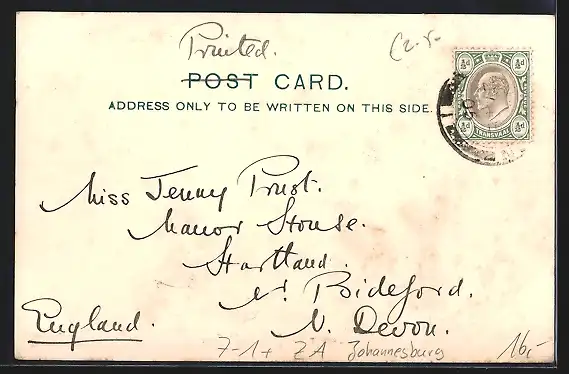 Printed.
POST CARD.
ADDRESS ONLY TO BE WRITTEN ON THIS SIDE.
½d ½d
TRANSVAAL
½d ½d
Miss Jenny Prust.
Manor House.
Hartland.
nr Bideford.
N. Devon.
England.
7-1+ ZA Johannesburg
16,-